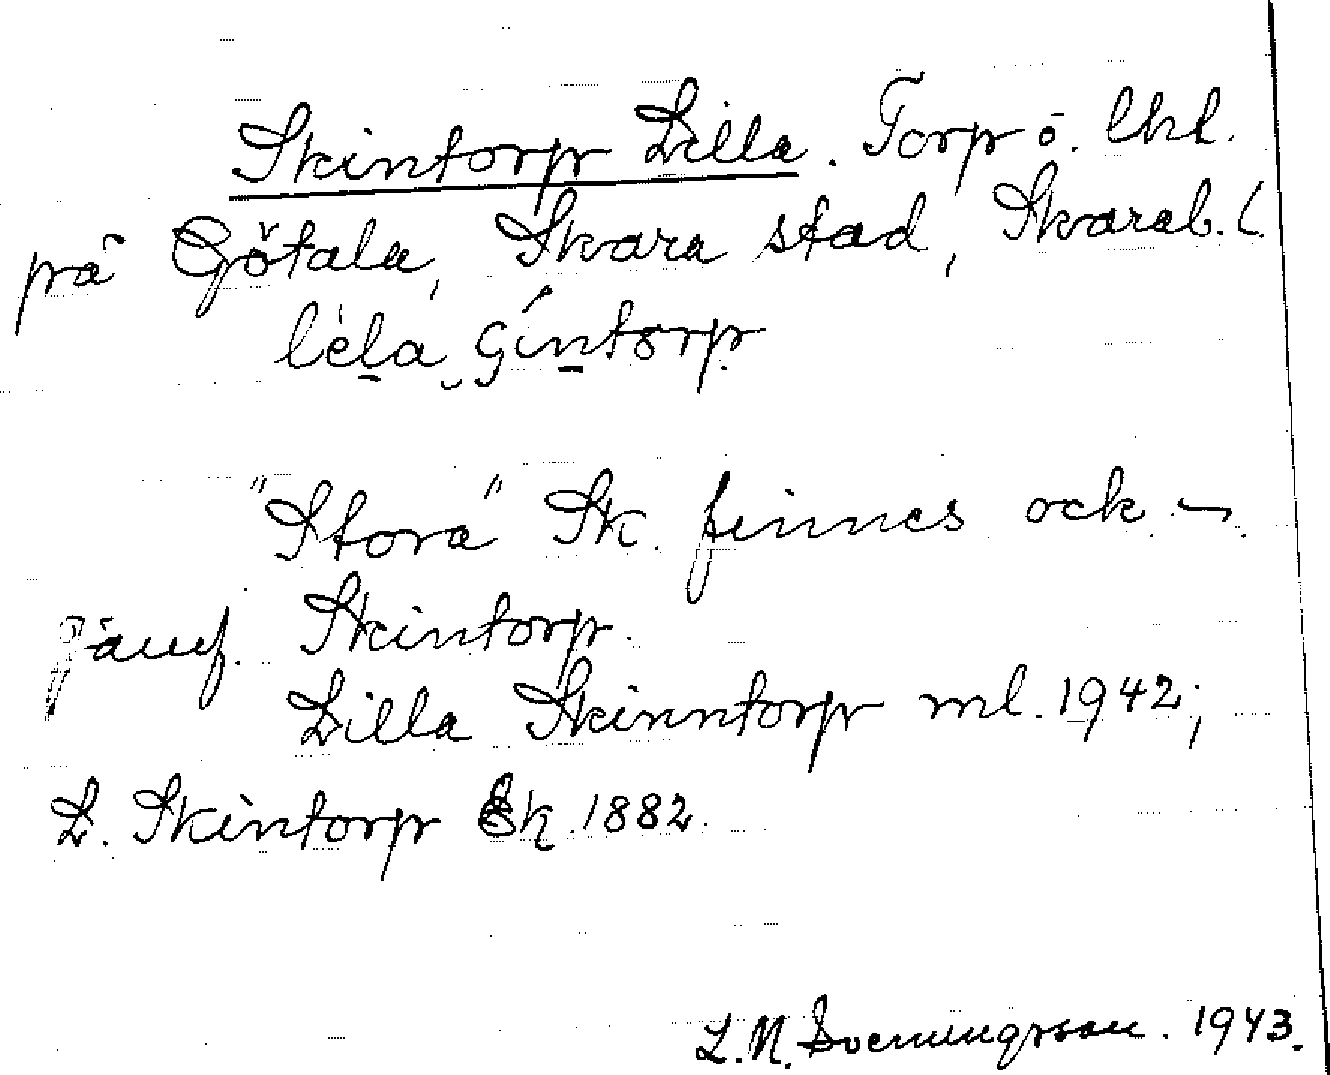 Skintorp Lilla. Torp o. lhl.
på Götala, Skara stad, Skarab. l.
lèla
"Stora" Sk. finnes ock –
jämf. Skintorp.
Lilla Skinntorp ml. 1942;
L. Skintorp Ek. 1882.
L. N. Svenungsson. 1943.